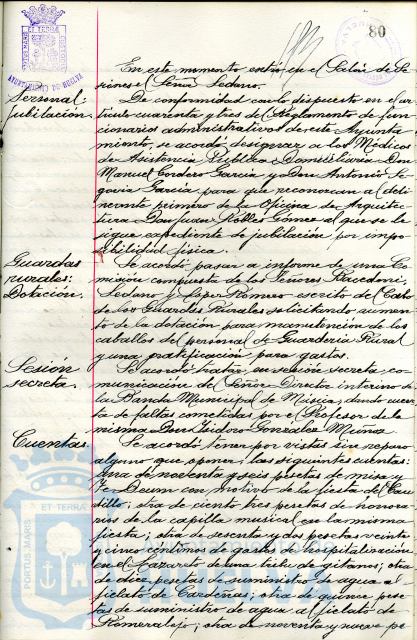 80
AYUNTAMIENTO DE HUELVA
En este momento entró en el Salón de Se-
siones el Señor Ledano.
Personal
jubilación.
De conformidad con lo dispuesto en el ar-
tículo cuarenta y tres del Reglamento de fun-
cionarios administrativos de este Ayunta-
miento, se acordó designar a los Médicos
de Asistencia Pública Domiciliaria Don
Manuel Cordero García y Don Antonio Se-
govia García para que reconozcan al deli-
neante primero de la Oficina de Arquitec-
tura Don Juan Robles Gómez al que se le
sigue expediente de jubilación por impo-
sibilidad física.
Guardas
rurales:
Dotación.
Se acordó pasar a informe de una Co-
misión compuesta de los Señores
Ledano y López Romero escrito del Cabo
de los Guardas Rurales solicitando aumen-
to de la dotación para manutención de los
caballos del personal de Guardería Rural
y una gratificación para gastos.
Sesión
secreta.
Se acordó tratar, en sesión secreta, co-
municación del Señor Director interino de
la Banda Municipal de Música, dando cuen-
ta de faltas cometidas por el Profesor de la
misma Don Isidoro González Muñoz
Cuentas.
Se acordó tener por vistas sin reparo
alguno que oponer, las siguientes cuentas:
una de noventa y seis pesetas de misa y
Te-Deum con motivo de la fiesta del Cau-
dillo; otra de ciento tres pesetas de honora-
rios de la capilla musical en la misma
fiesta; otra de setenta y dos pesetas veinte
y cinco céntimos de gastos de hospitalización
en el Lazareto de una tribu de gitanos; otra
de doce pesetas de suministro de agua al
fielato de Cardeñas; otra de quince pese-
tas de suministro de agua al fielato de
Romeralejo; otra de noventa y nueve pe-
PORTUS MARIS
ET TERRAE